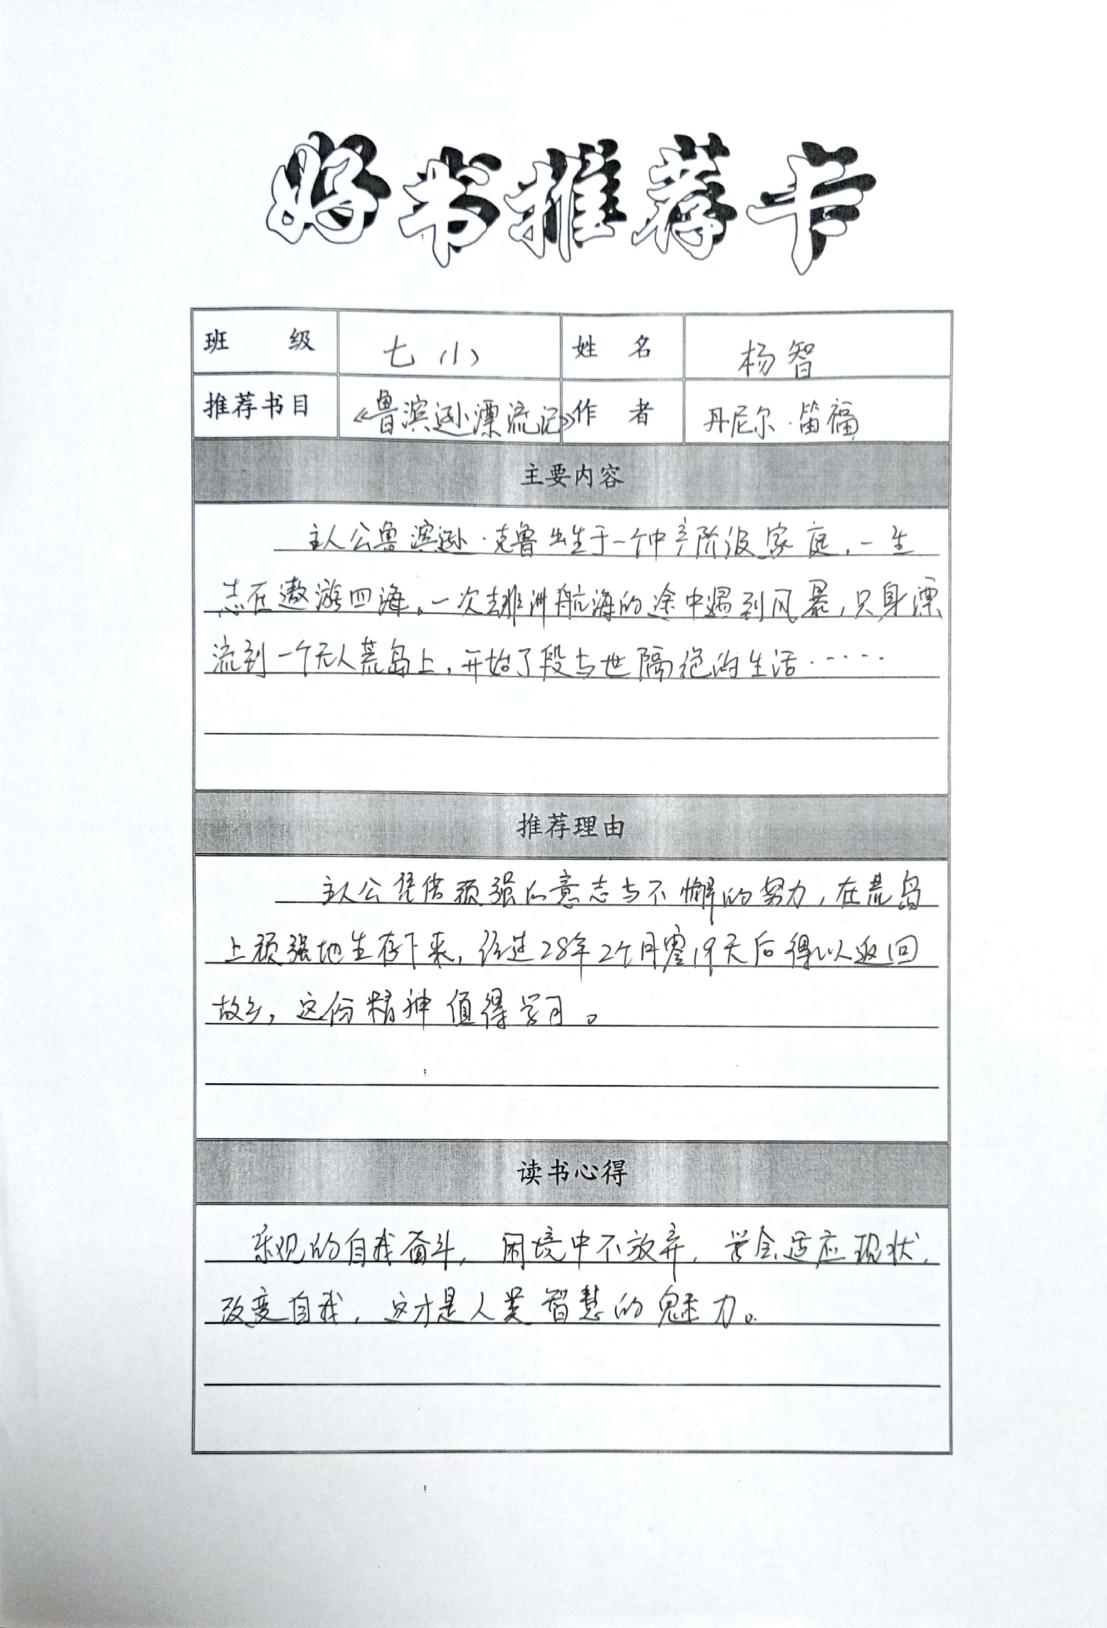 好书推荐卡
班 级 七(1) 姓 名 杨智
推荐书目 《鲁滨逊漂流记》 作 者 丹尼尔·笛福
主要内容
主人公鲁滨逊·克鲁出生于一个中产阶级家庭,一生
志在遨游四海。一次去非洲航海的途中遇到风暴,只身漂
流到一个无人荒岛上,开始了段与世隔绝的生活……
推荐理由
主人公凭借顽强的意志与不懈的努力,在荒岛
上顽强地生存下来,经过28年2个月零19天后得以返回
故乡,这份精神值得学习。
读书心得
乐观的自我奋斗,困境中不放弃,学会适应现状,
改变自我,这才是人类智慧的魅力。